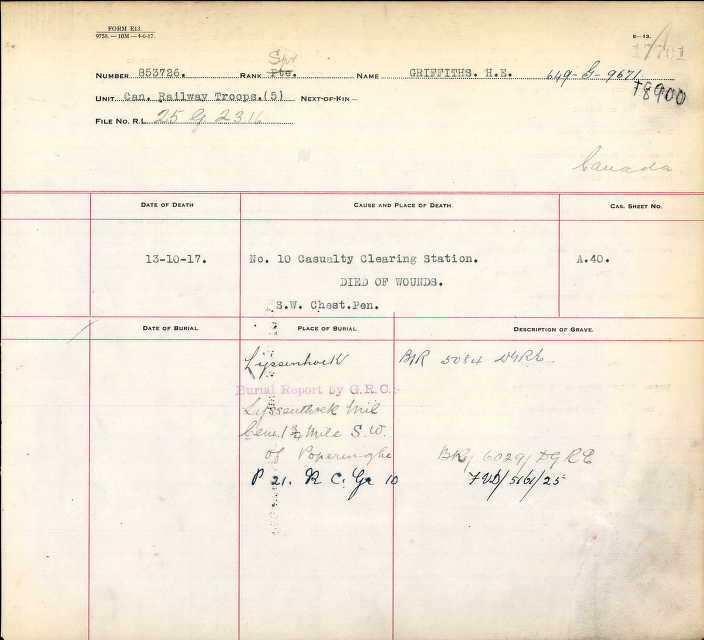 FORM E13.
9758. — 10M — 4-6-17.
E—13.
17701
Spr
NUMBER 853726. RANK Pte. NAME GRIFFITHS. H.E. 649-G-9671
78900
UNIT Can. Railway Troops.(5) NEXT-OF-KIN—
FILE NO. R.L. 25 G 2316
Canada
DATE OF DEATH CAUSE AND PLACE OF DEATH CAS. SHEET NO.
13-10-17. No. 10 Casualty Clearing Station. A.40.
DIED OF WOUNDS.
S.W. Chest.Pen.
DATE OF BURIAL PLACE OF BURIAL DESCRIPTION OF GRAVE.
Lyssenhoek B/R 5084 DGRE
Burial Report by G.R.C:-
Lyssenthoek Mil
Cem. 1¾ Mile S.W.
of Poperinghe B/R/ 6029/ DGRE
P 21. R C. Gr 10 FVD/5161/25